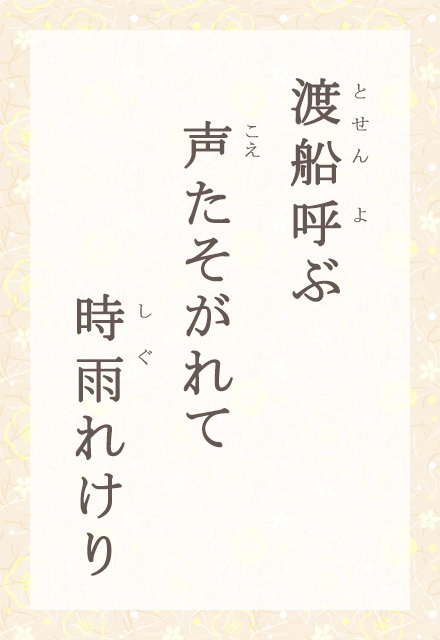 渡船呼ぶ
とせん よ
声たそがれて
こえ
時雨れけり
しぐ